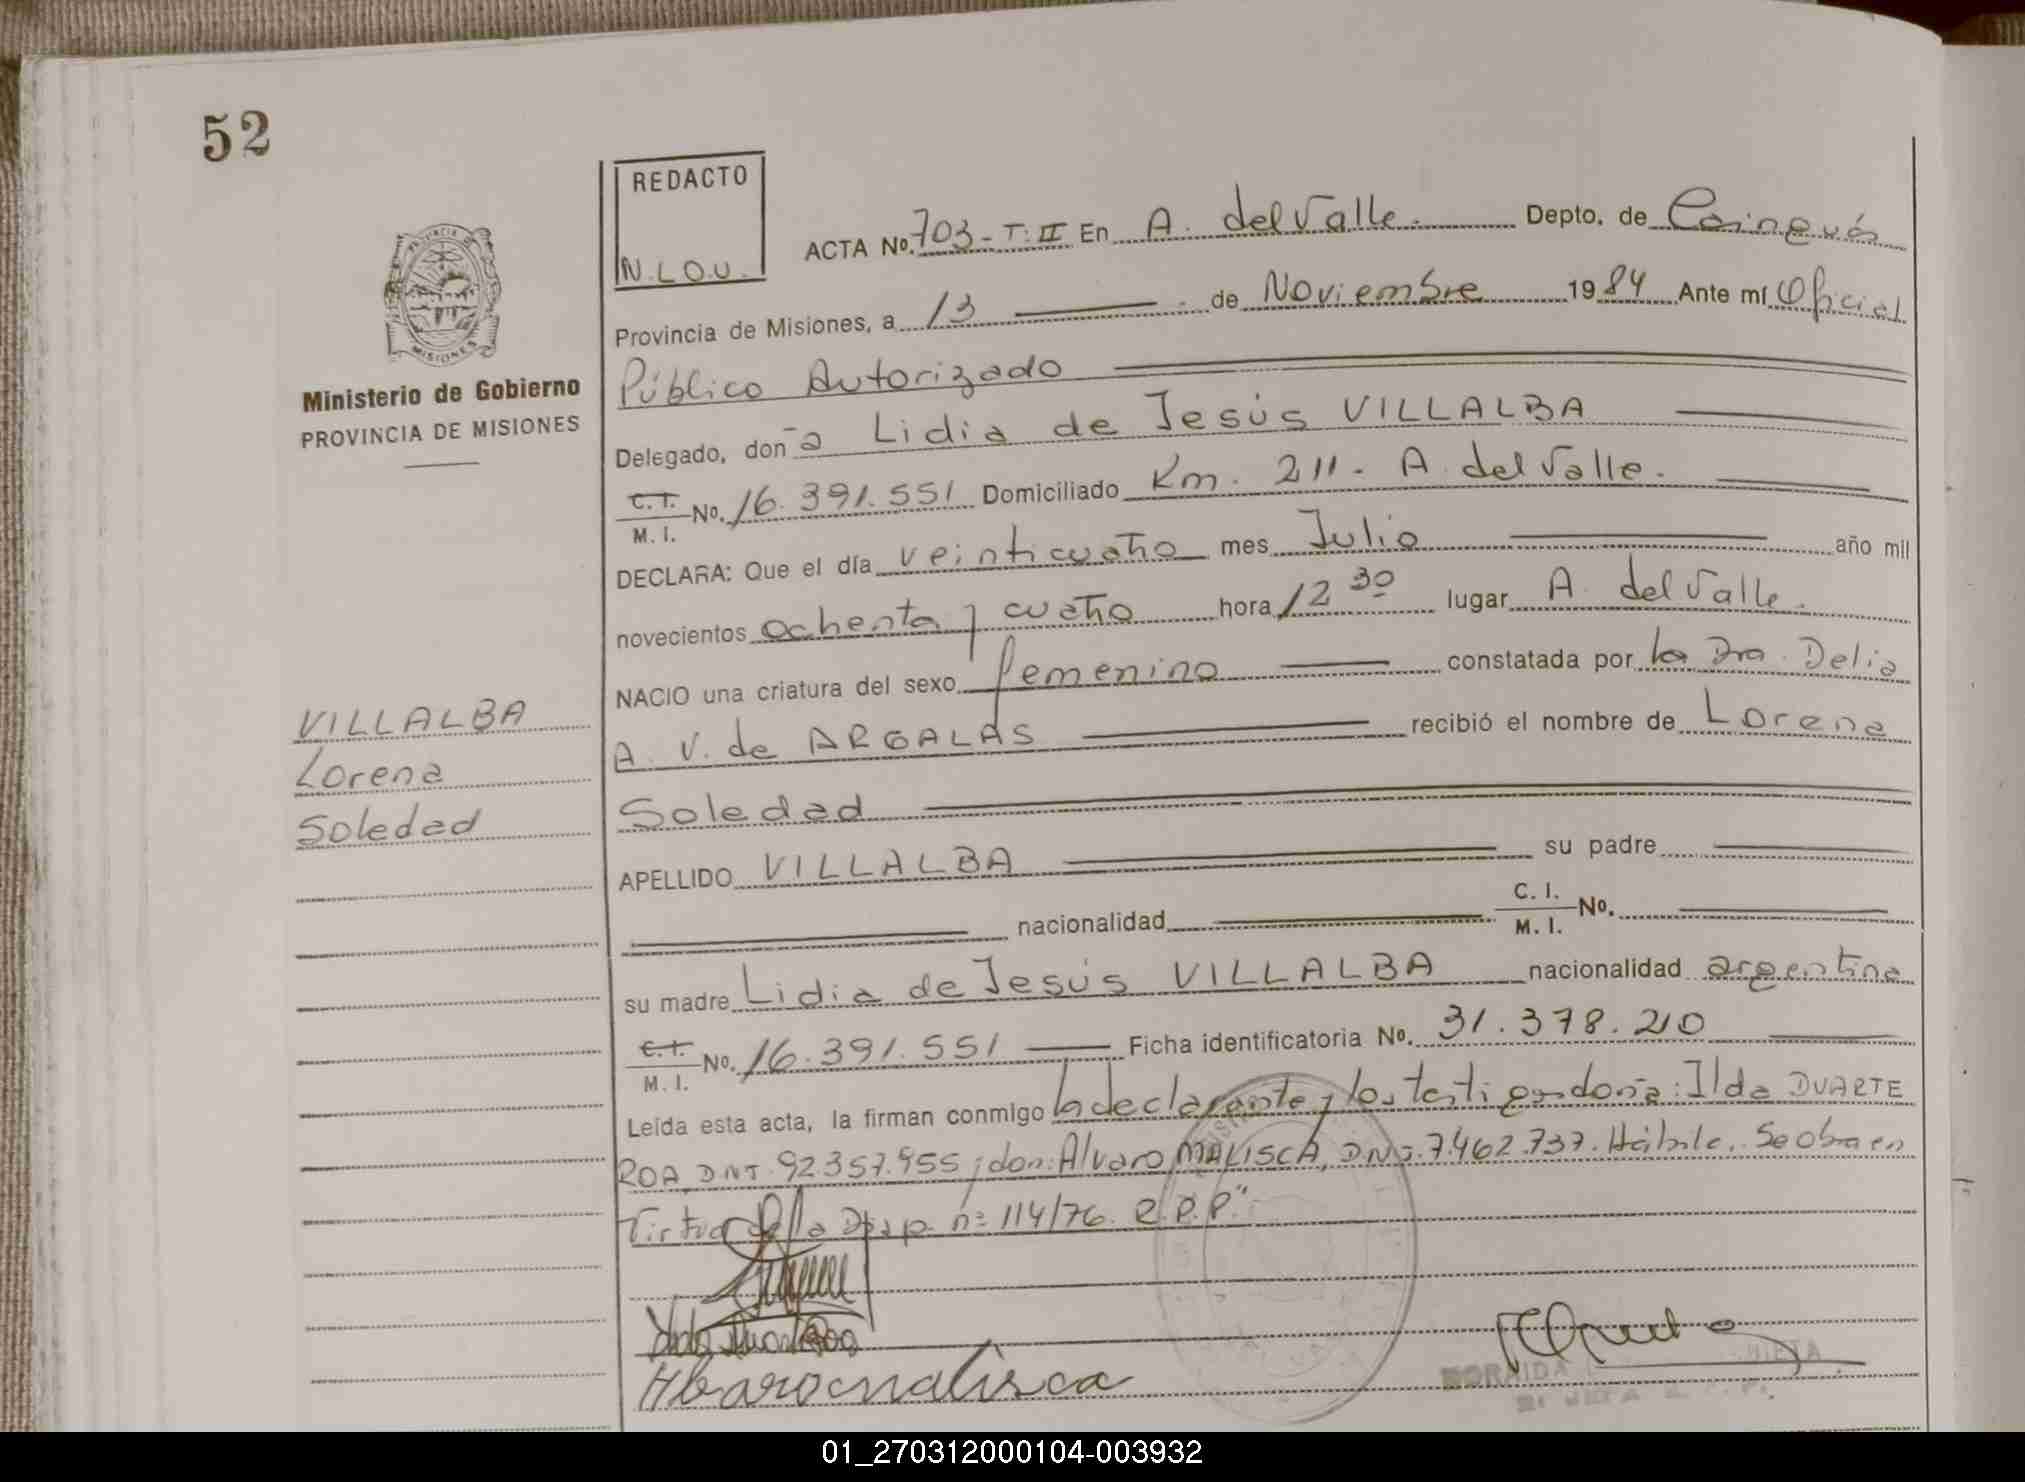 52
REDACTO
N.L.O.U.
ACTA No. 703-T.II En A. del Valle. Depto. de Cainguás
Provincia de Misiones, a 13 de Noviembre 1984 Ante mí Oficial
Público Autorizado
Delegado, doña Lidia de Jesús VILLALBA
C.I. M.I. No. 16.391.551 Domiciliado Km. 211. A. del Valle.
DECLARA: Que el día veinticuatro mes Julio año mil
novecientos ochenta y cuatro hora 12 30 lugar A. del Valle.
NACIO una criatura del sexo femenino constatada por la Dra. Delia
A. V. de ARGALAS recibió el nombre de Lorena
Soledad
APELLIDO VILLALBA su padre
nacionalidad C. I. M. I. No.
su madre Lidia de Jesús VILLALBA nacionalidad argentina
C.I. M.I. No. 16.391.551 Ficha identificatoria No. 31.378.210
Leída esta acta, la firman conmigo la declarante y los testigos doña: Ilda DUARTE
ROA, DNI. 92.357.955 y don: Alvaro MALISCA, DNI. 7.462.737. Hábile. Se obra en
Virtud de la Disp. nº 114/76. R.P.P."
Alvaro malisca
PROVINCIA DE
MISIONES
Ministerio de Gobierno
PROVINCIA DE MISIONES
VILLALBA
Lorena
Soledad
01_270312000104-003932